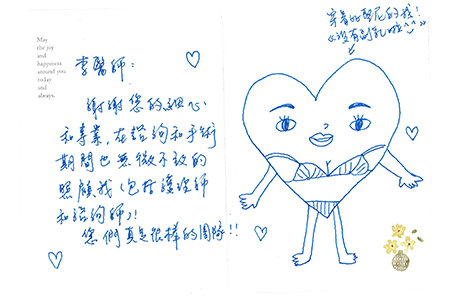 May
the joy
and
happiness
around you
today
and
always.
李醫師：
謝謝您的細心
和專業，在諮詢和手術
期間也無微不致的
照顧我（包括護理師
和諮詢師)！
您們真是很棒的團隊!!
穿著比基尼的我！
《沒有副乳啦^^》